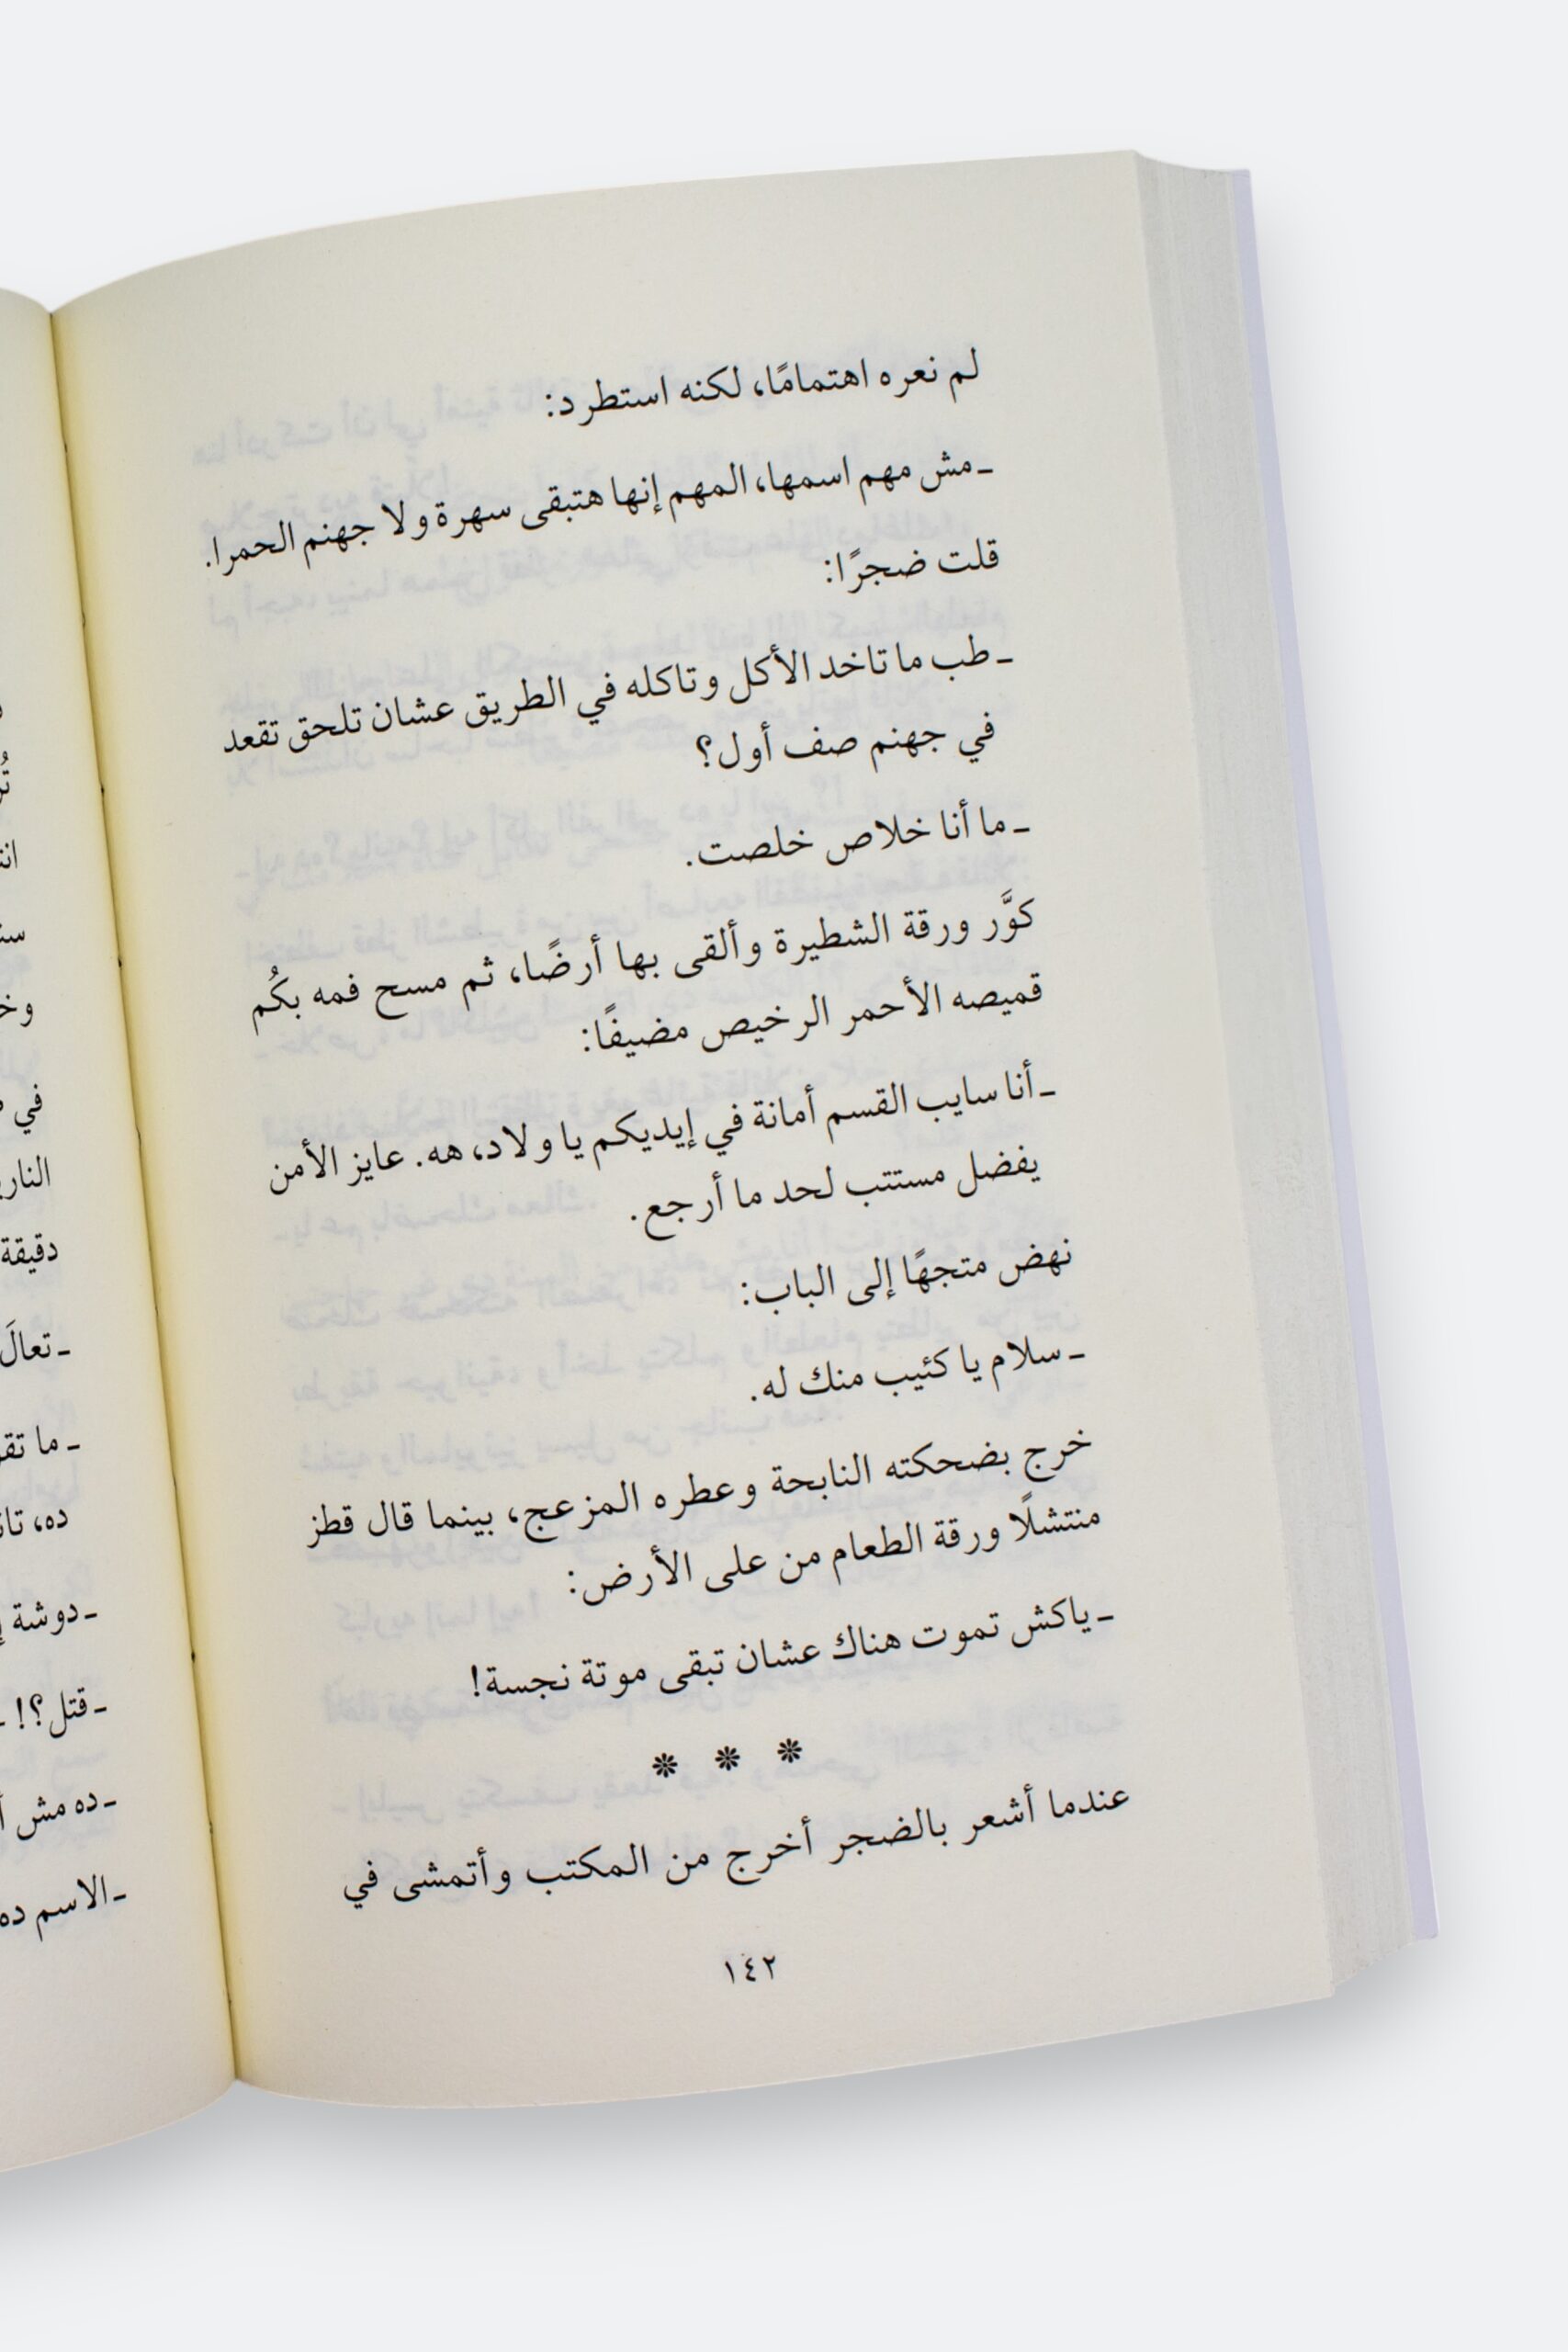 لم نعره اهتمامًا، لكنه استطرد:
ـ مش مهم اسمها، المهم إنها هتبقى سهرة ولا جهنم الحمرا.
قلت ضجرًا:
ـ طب ما تاخد الأكل وتاكله في الطريق عشان تلحق تقعد
في جهنم صف أول؟
ـ ما أنا خلاص خلصت.
كوَّر ورقة الشطيرة وألقى بها أرضًا، ثم مسح فمه بكُم
قميصه الأحمر الرخيص مضيفًا:
ـ أنا سايب القسم أمانة في إيديكم يا ولاد، هه. عايز الأمن
يفضل مستتب لحد ما أرجع.
نهض متجهًا إلى الباب:
ـ سلام يا كئيب منك له.
خرج بضحكته النابحة وعطره المزعج، بينما قال قطز
منتشلًا ورقة الطعام من على الأرض:
ـ ياكش تموت هناك عشان تبقى موتة نجسة!
* * *
عندما أشعر بالضجر أخرج من المكتب وأتمشى في
١٤٢
في
دقيقة
ـ تعالَ
ـ ما
ده،
ـ دوشة
ـ قتل؟! ـ
ـ ده مش
ـ الاسم ده